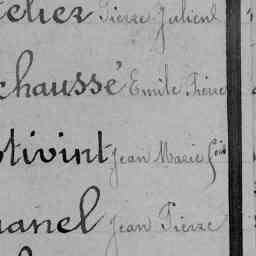 telier Pierre Julien
chaussé Emile Pierre
stivint Jean Marie fois
hanel Jean Pierre